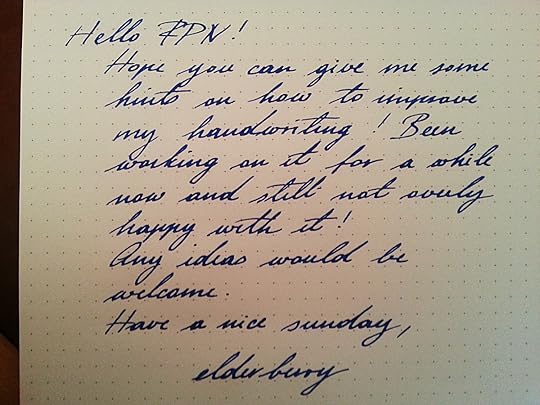 Hello FPN!
Hope you can give me some
hints on how to improve
my handwriting! Been
working on it for a while
now and still not overly
happy with it!
Any ideas would be
welcome.
Have a nice sunday,
elderbury